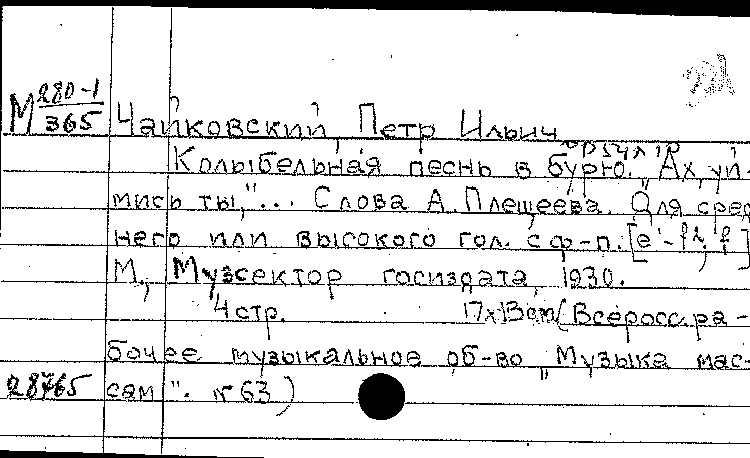 М 280-1
365 Чайковский, Петр Ильич
Колыбельная песнь в бурю. "Ах, уй-
мись ты,"... Слова А. Плещеева. Для сред
него или высокого гол. с ф-п.
М., Музсектор госиздата, 1930.
4 стр. 17х13 cm (Всеросс. ра-
бочее музыкальное об-во "Музыка мас-
28765 сам". № 63)